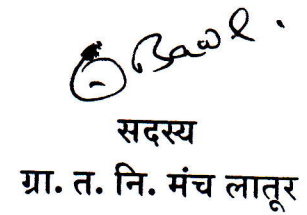 सदस्य
ग्रा. त. नि. मंच लातूर